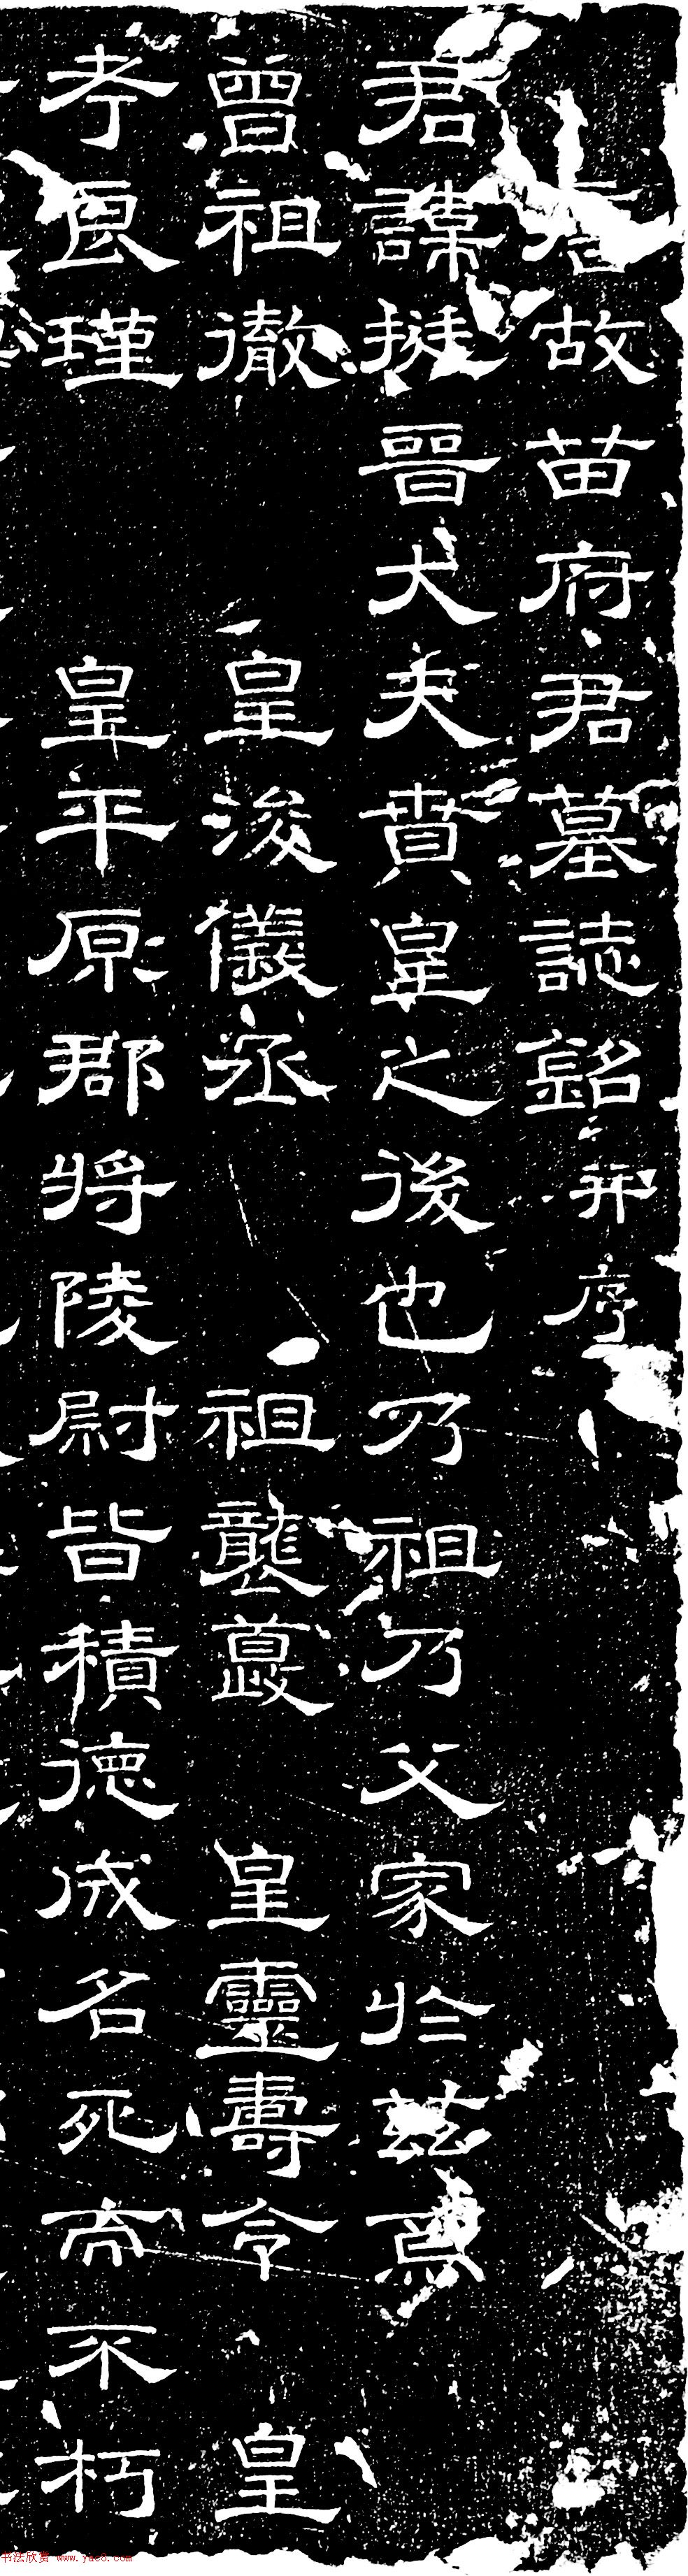 唐故苗府君墓誌銘并序
君諱挺晉大夫賁皇之後也乃祖乃父家於茲焉
曾祖徹 皇浚儀丞 祖襲夔 皇靈壽令 皇
考良瑾 皇平原郡將陵尉皆積德成名死而不朽
书法欣赏 www.yac8.com